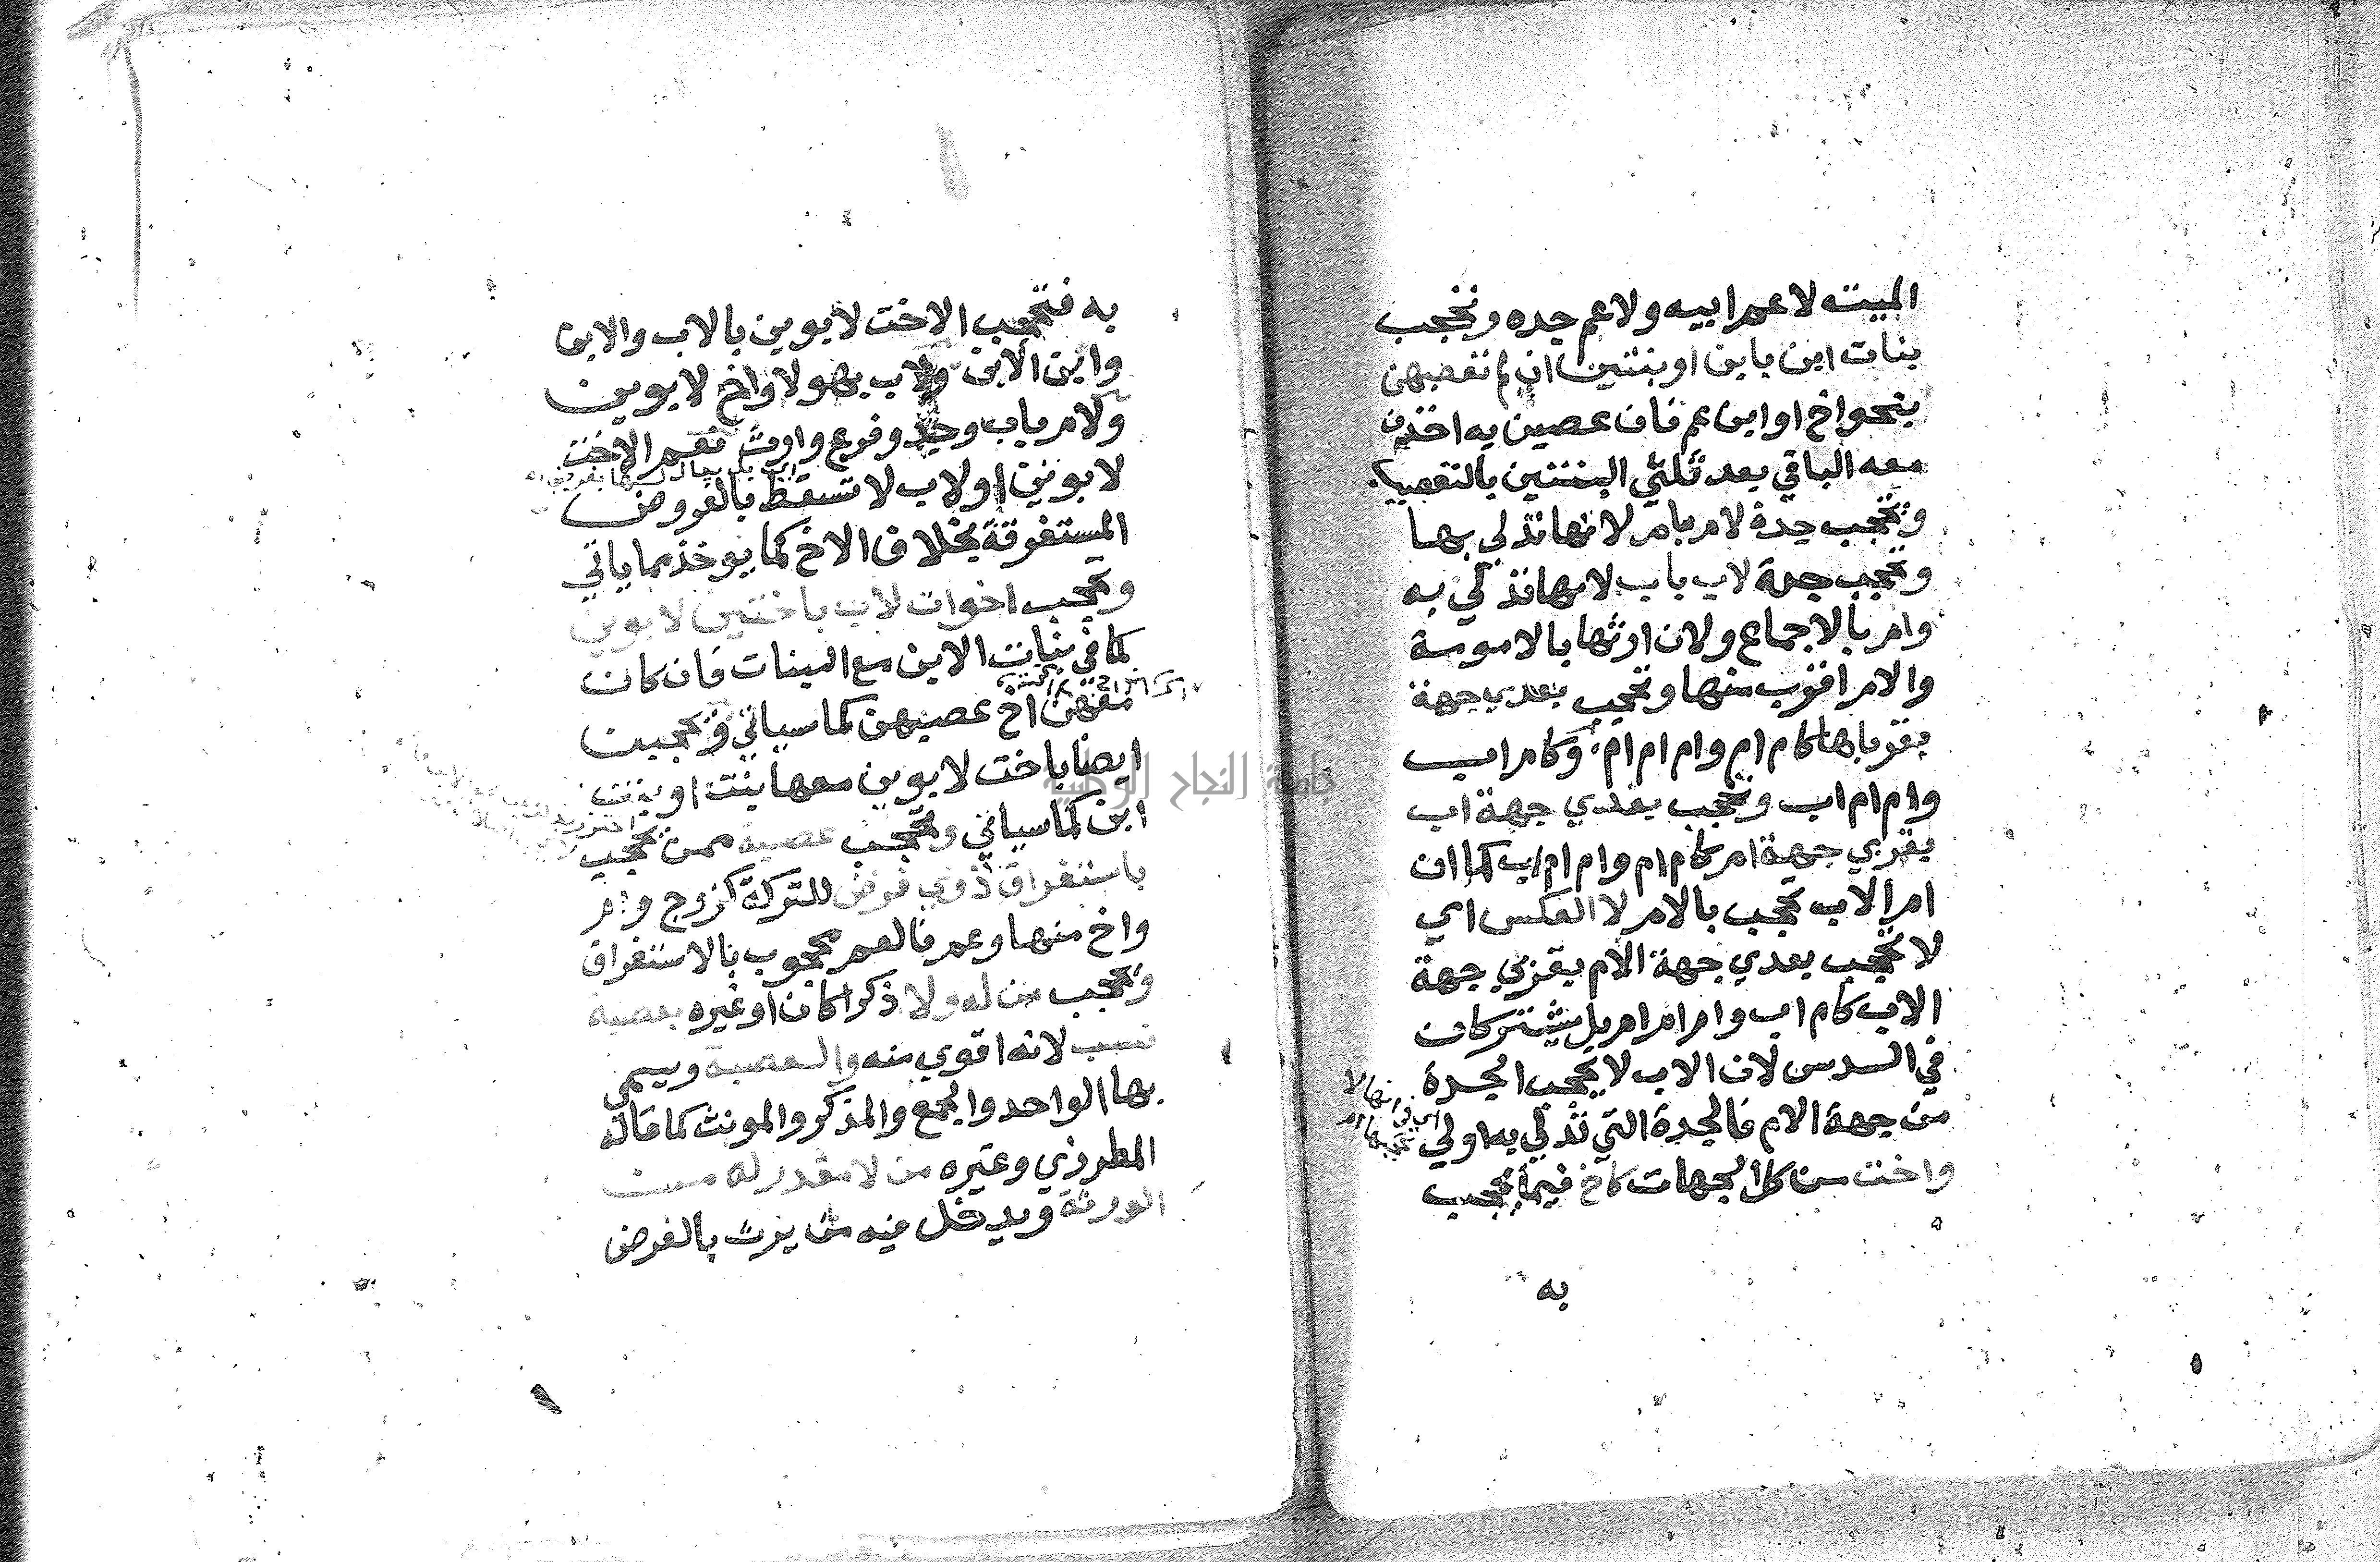 الميت لا عم ابيه ولا عم جده وتحجب
بنات ابن بابن او بنتين ان لم تعصبهن
بنحو اخ او ابن عم فان عصبن به اخذن
معه الباقي بعد ثلثي البنتين بالتعصيب
وتحجب جدة لام بام لانها تدلي بها
وتحجب جدة لاب باب لانها تدلي به
وام بالاجماع ولان ارثها بالامومة
والام اقرب منها وتحجب بعدي جهة
بقرباها كام ام وام ام ام وكام اب
وام ام اب وتحجب بعدي جهة اب
بقربي جهة ام كام ام وام ام اب كما ان
ام الاب تحجب بالام لا العكس اي
لا تحجب بعدي جهة الام بقربي جهة
الاب كام اب وام ام ام بل يشتركان
في السدس لان الاب لا يحجب الجدة
من جهة الام فالجدة التي تدلي به اولي
اي في انها لا
تحجبها ام
واخت من كل الجهات كاخ فيما تحجب
به
جامعة النجاح الوطنية
به فتحجب الاخت لابوين بالاب والابن
وابن الابن ولاب بهولا واخ لابوين
ولام باب وجد وفرع وارث نعم الاخت
لابوين او لاب لا تسقط بالفروض
اي بل يعال لها بفرضها
المستغرقة بخلاف الاخ كما يوخذ مما ياتي
وتحجب اخوات لاب باختين لابوين
كما في بنات الابن مع البنات فان كان
معهن اخ عصبهن كما سياتي وتحجبن
ايضا باخت لابوين معها بنت او بنت
ابن كما سياتي وتحجب عصبة ممن تحجب
باستغراق ذوي فرض للتركة كزوج وام
واخ منها وعم فالعم محجوب بالاستغراق
وتحجب من له ولا ذكرا كان او غيره بعصبة
نسب لانه اقوي منه والعصبة ويسمي
بها الواحد والجمع والمذكر والمونث كما قاله
المطرزي وغيره من لا مقدر له من
الورثة ويدخل فيه من يرث بالفرض